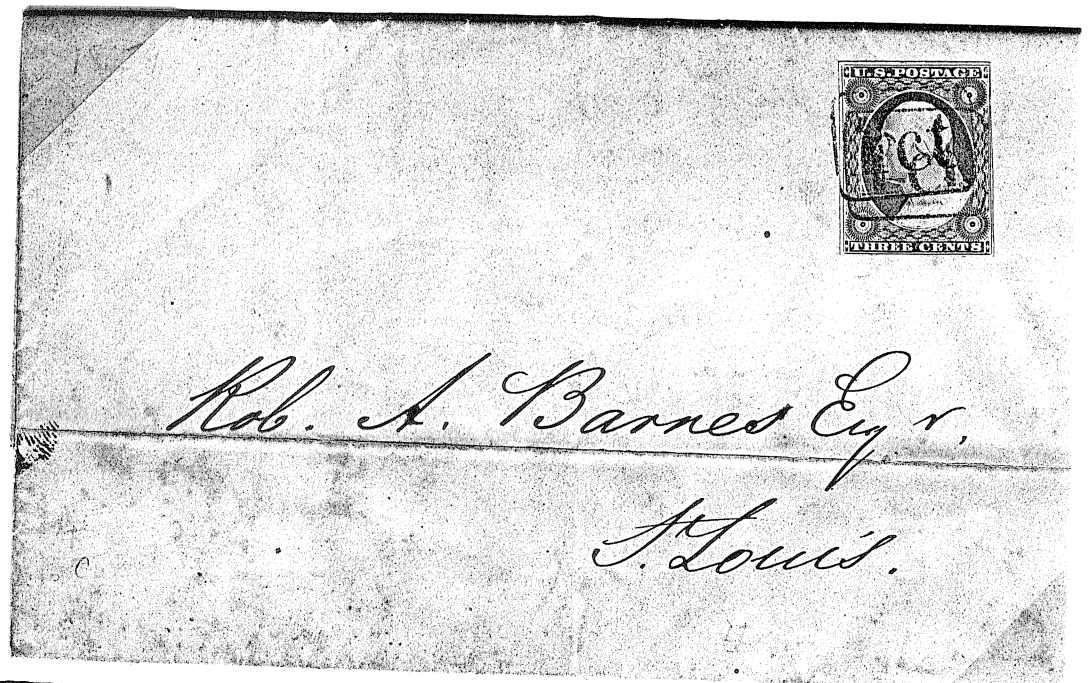 U.S. POSTAGE
THREE CENTS
Rob. A. Barnes Esqr.
St. Louis.